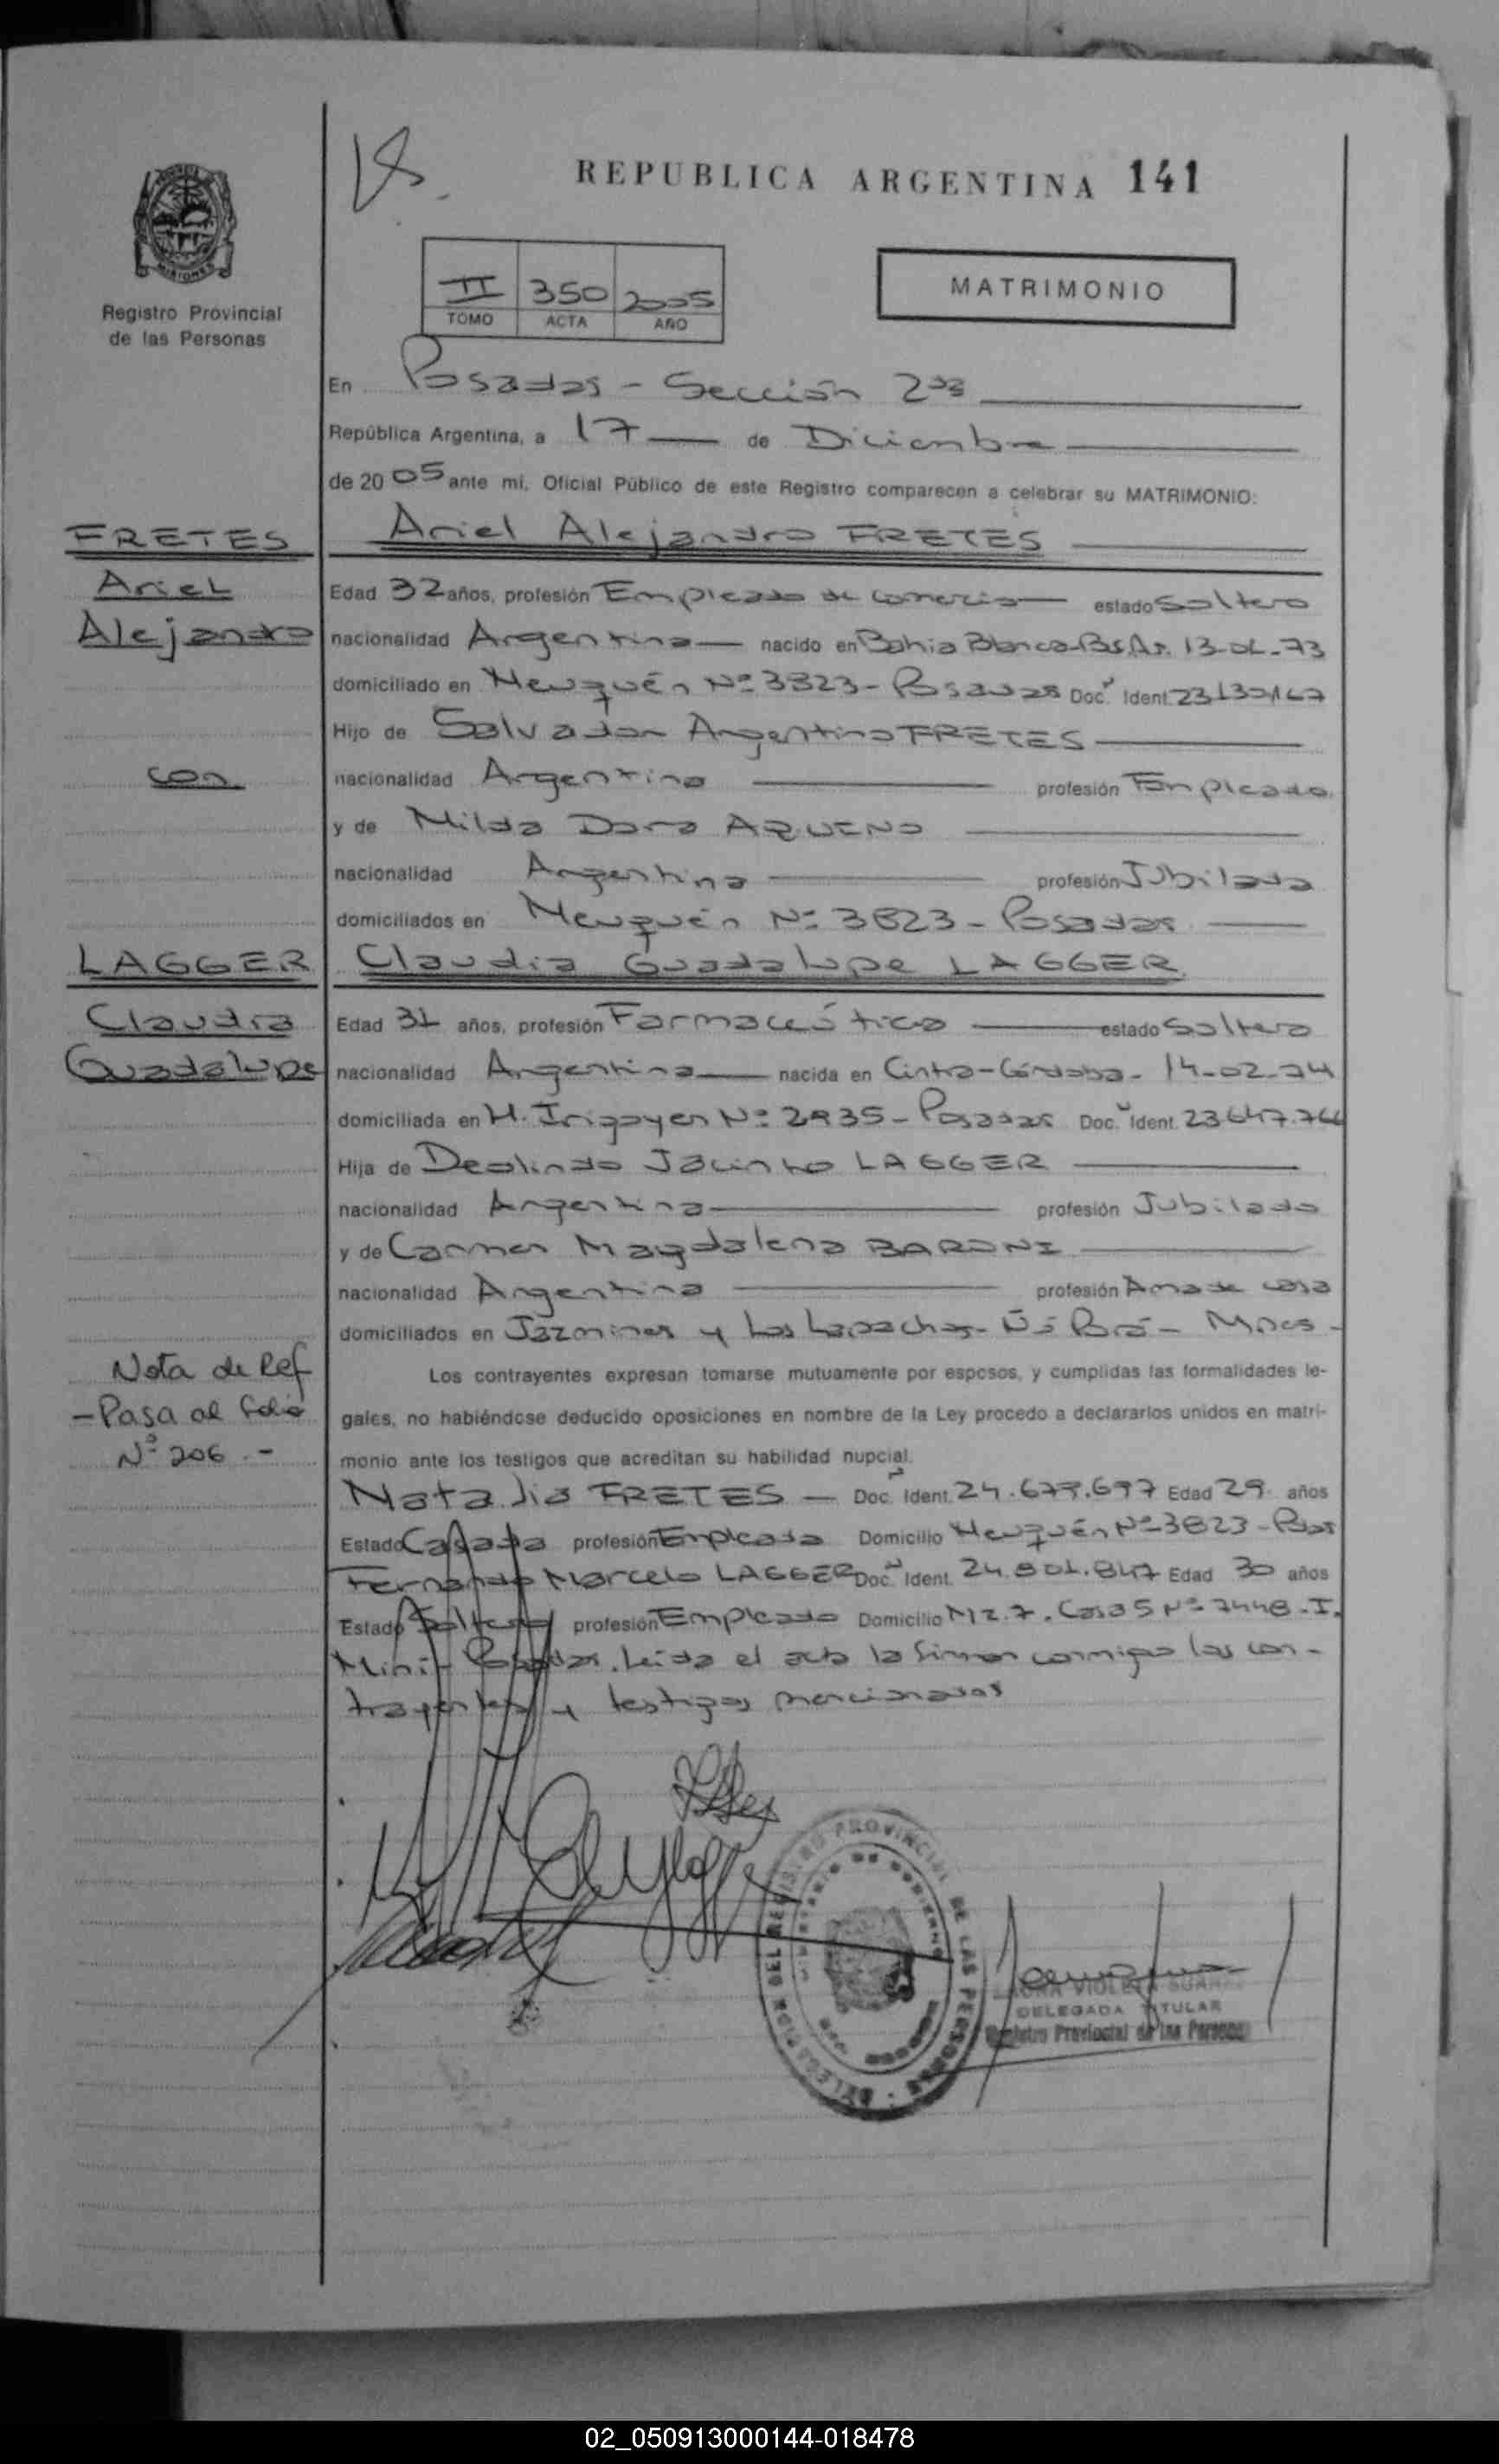 18.
REPUBLICA ARGENTINA 141
MISIONES
Registro Provincial
de las Personas
II 350 2005
TOMO ACTA AÑO
MATRIMONIO
En Posadas - Sección 2da
República Argentina, a 17 de Diciembre
de 2005 ante mi, Oficial Público de este Registro comparecen a celebrar su MATRIMONIO:
FRETES
Ariel Alejandro FRETES
Ariel
Alejandro
Edad 32 años, profesión Empleado de comercio estado Soltero
nacionalidad Argentina nacido en Bahia Blanca-Bs.As. 13-01-73
domiciliado en Neuquén Nº 3823 - Posadas Doc. Ident.
Hijo de Salvador Argentino FRETES
con
nacionalidad Argentina profesión Empleado
y de Nilda Dora AQUINO
nacionalidad Argentina profesión Jubilada
domiciliados en Neuquén Nº 3823 - Posadas
LAGGER
Claudia Guadalupe LAGGER
Claudia
Guadalupe
Edad 31 años, profesión Farmaceútica estado Soltera
nacionalidad Argentina nacida en Cintra-Córdoba - 14-02-74
domiciliada en H. Irigoyen Nº 2935 - Posadas Doc. Ident. 23.647.766
Hija de Deolindo Jacinto LAGGER
nacionalidad Argentina profesión Jubilado
y de Carmen Magdalena BARONI
nacionalidad Argentina profesión Ama de casa
domiciliados en Jazmines y Los Lapachos - Ñú Porá - Mnes -
Nota de Ref
- Pasa al folio
Nº 206.-
Los contrayentes expresan tomarse mutuamente por esposos, y cumplidas las formalidades le-
gales, no habiéndose deducido oposiciones en nombre de la Ley procedo a declararlos unidos en matri-
monio ante los testigos que acreditan su habilidad nupcial.
Natalia FRETES - Doc. Ident. 24.679.697 Edad 29 años
Estado Casada profesión Empleada Domicilio Neuquén Nº 3823 - Pdas
Fernando Marcelo LAGGER Doc. Ident. 24.801.847 Edad 30 años
Estado Soltero profesión Empleado Domicilio Mz.7. Casa 5 Nº 7448 - I.
Miní - Posadas. Leida el acta la firman conmigo los con-
trayentes y testigos mencionados
DELEGACION DEL REGISTRO PROVINCIAL DE LAS PERSONAS
MINISTERIO DE GOBIERNO
LAURA VIOLETA SUAREZ
DELEGADA TITULAR
Registro Provincial de las Personas
02_050913000144-018478